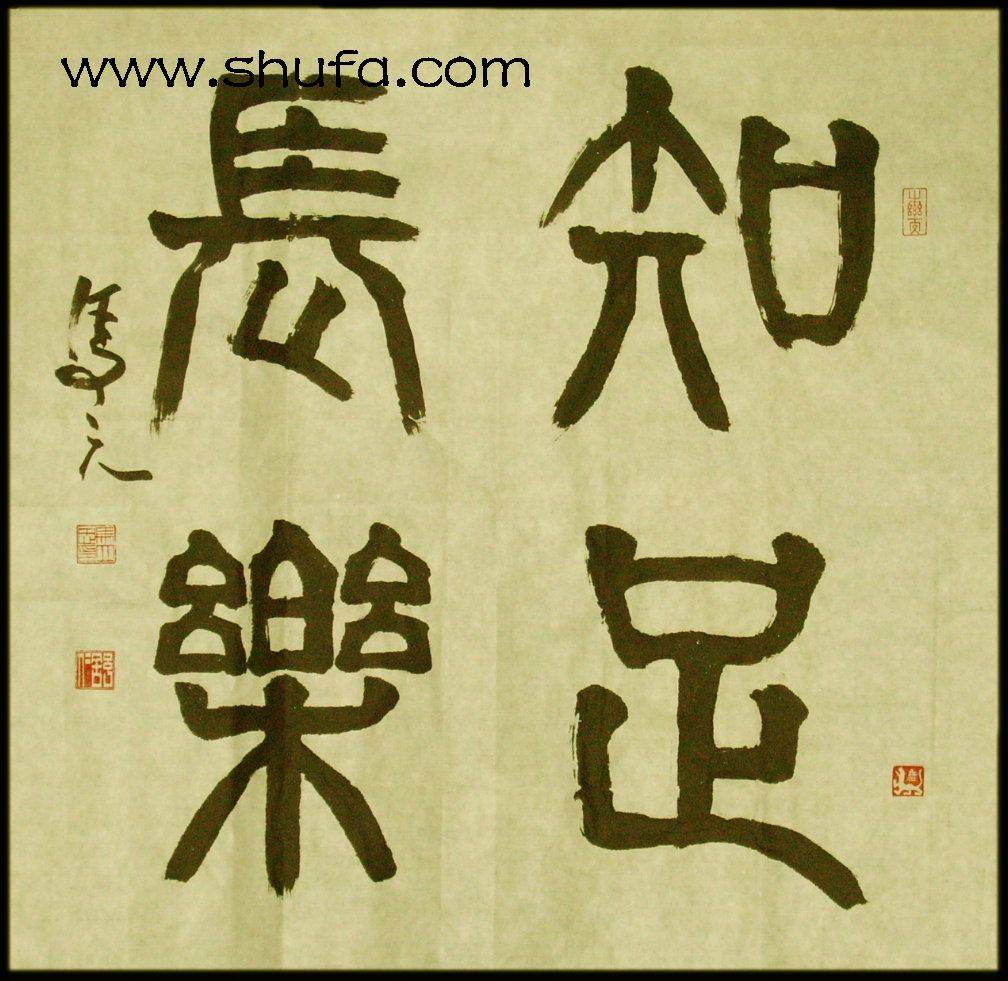 www.shufa.com
知足
長樂